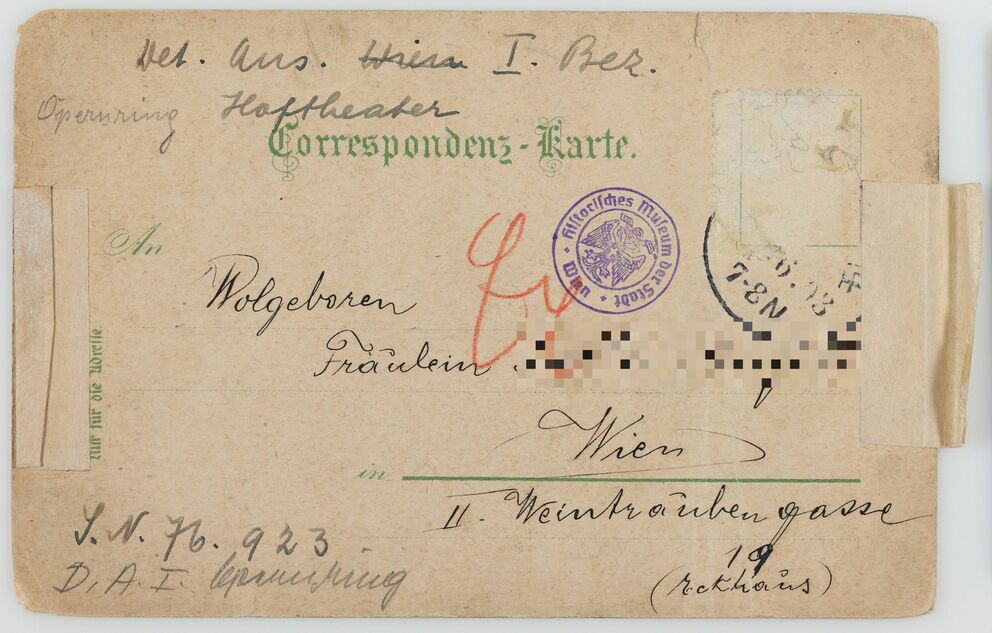 Det. Aus. Wien I. Bez.
Opernring Hoftheater
Correspondenz-Karte.
Historisches Museum der Stadt Wien
6. 98
7-8N
An
Wolgeboren
Fräulein
Wien
in
Nur für die Adresse
II. Weinträubengasse
19
(Eckhaus)
S. N. 76. 923
D. A. I. Opernring